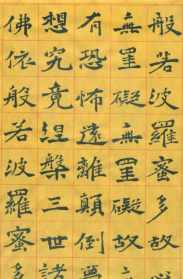 般若波羅蜜多故心
無罣礙無罣礙故無
有恐怖遠離顛倒夢
想究竟涅槃三世諸
佛依般若波羅蜜多